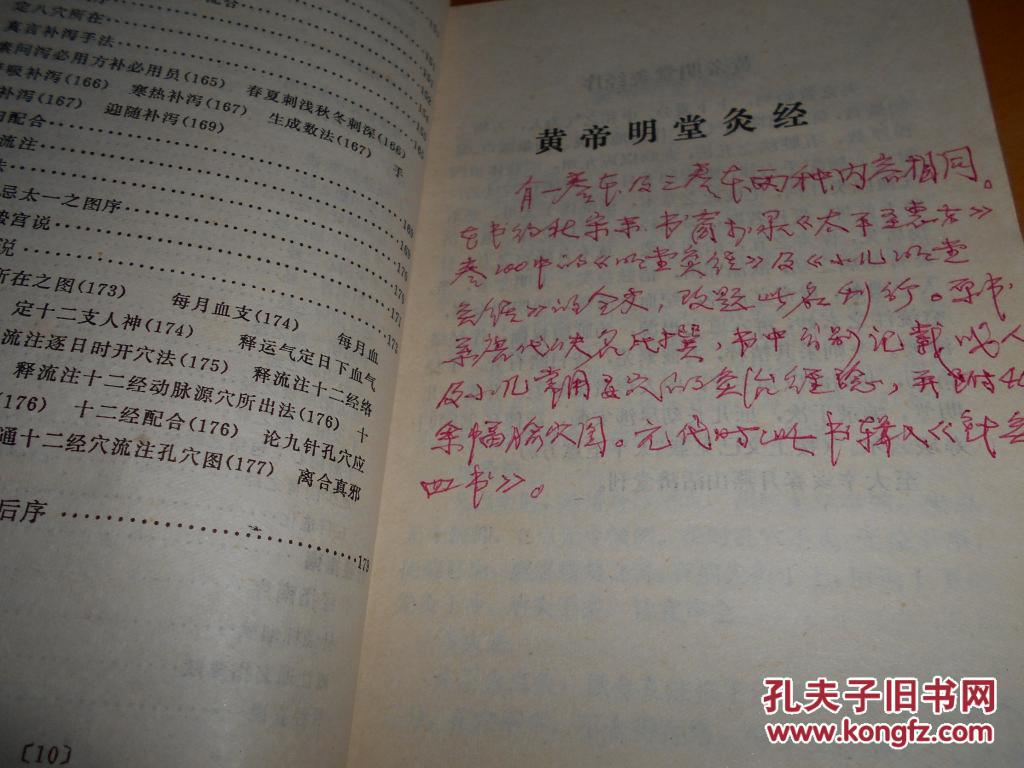 定八穴所在
真言补泻手法
素问泻必用方补必用员(165) 春夏刺浅秋冬刺深(166)
呼吸补泻(166) 寒热补泻(167) 生成数法(167) 手
补泻(167) 迎随补泻(169)
配合
流注
法
忌太一之图序
说
所在之图(173) 每月血支(174) 每月血
定十二支人神(174) 释运气定日下血气
流注逐日时开穴法(175) 释流注十二经络
释流注十二经动脉源穴所出法(176) 十
(176) 十二经配合(176) 论九针孔穴应
通十二经穴流注孔穴图(177) 离合真邪
后序 179
〔10〕
黄帝明堂灸经
有一卷本及三卷本两种,内容相同。
本书约北宋末书商为取《太平圣惠方》
卷100中的《明堂灸经》及《小儿明堂
灸经》的全文,改题此名刊行。原书
系唐代佚名氏撰,书中分别记载成人
及小儿常用要穴的灸治经验,并附40
余幅腧穴图。元代时此书辑入《针灸
四书》。
孔夫子旧书网
www.kongfz.com